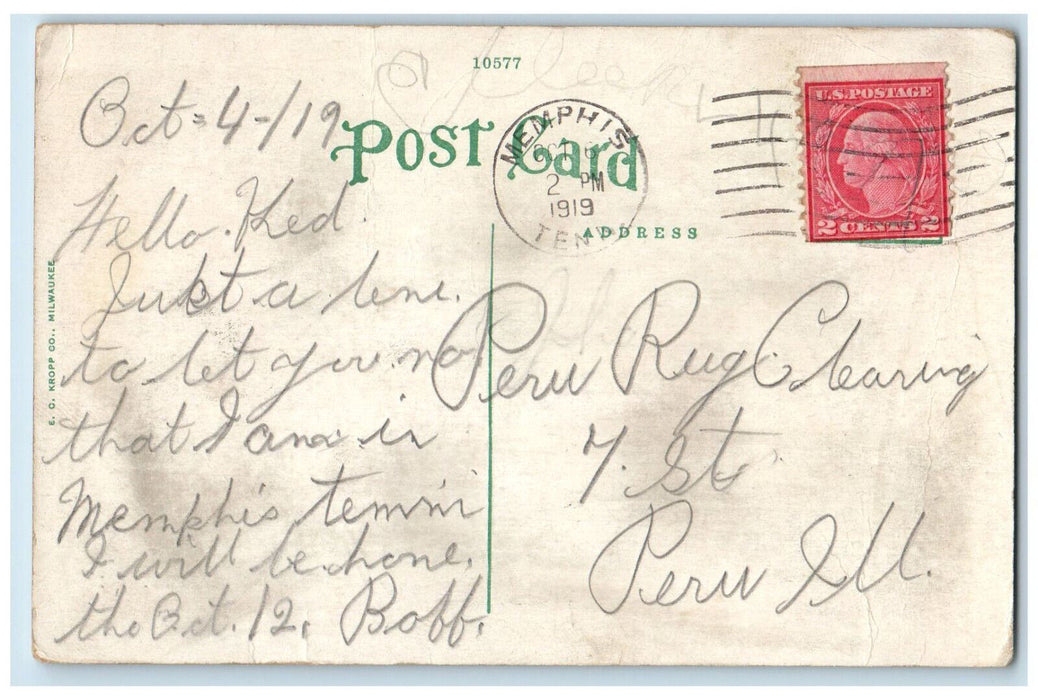 10577
Post Card
MEMPHIS
OCT
2 PM
1919
TENN
U.S. POSTAGE
2 CENTS 2
ADDRESS
E. C. KROPP CO., MILWAUKEE
Oct = 4 - /19
Hello. Ked.
Just a line.
to let you no
that I am in
Memphis
I will be hone.
the Oct. 12. Boff.
Peru Rug Clearing
7. St
Peru Ill.